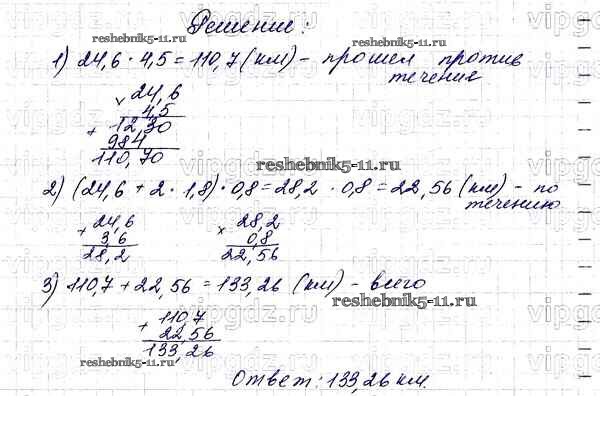 Решение:
reshebnik5-11.ru
reshebnik5-11.ru
1) 24,6 · 4,5 = 110,7 (км) - прошел против
течения
× 24,6
4,5
+ 1230
984
110,70
reshebnik5-11.ru
2) (24,6 + 2 · 1,8) · 0,8 = 28,2 · 0,8 = 22,56 (км) - по
течению
+ 24,6
3,6
28,2
× 28,2
0,8
22,56
3) 110,7 + 22,56 = 133,26 (км) - всего
reshebnik5-11.ru
+ 110,7
22,56
133,26
reshebnik5-11.ru
Ответ: 133,26 км.
vipgdz.ru